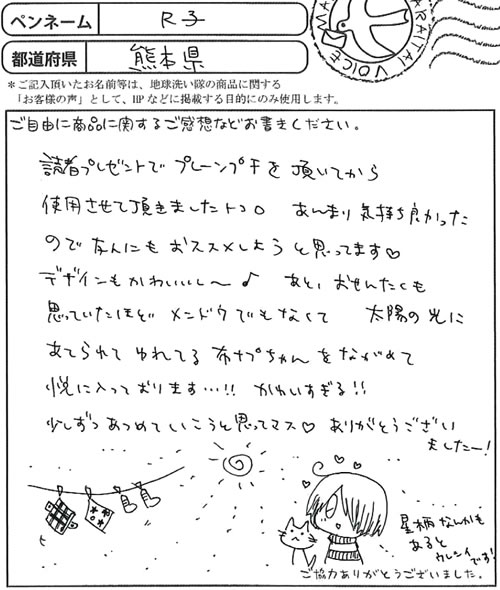 ペンネーム R子
都道府県 熊本県
＊ご記入頂いたお名前等は、地球洗い隊の商品に関する
「お客様の声」として、HPなどに掲載する目的にのみ使用します。
ARAITAI VOICE
ご自由に商品に関するご感想などお書きください。
読者プレゼントで プレーンプチを 頂いてから
使用させて頂きましたトコロ あんまり 気持ち良かった
ので なんにも おススメしようと思ってます♡
デザインもかわいいし〜♪ あと、おせんたくも
思っていたほど メンドウでもなくて 太陽の光に
あてられて ゆれてる 布ナプちゃんをながめて
悦に入っております…!! かわいすぎる!!
少しずつ あつめていこうと思ってマス♡ ありがとうござい
ましたー!
星柄なんかも
あると
ウレシイ
です!
ご協力ありがとうございました。